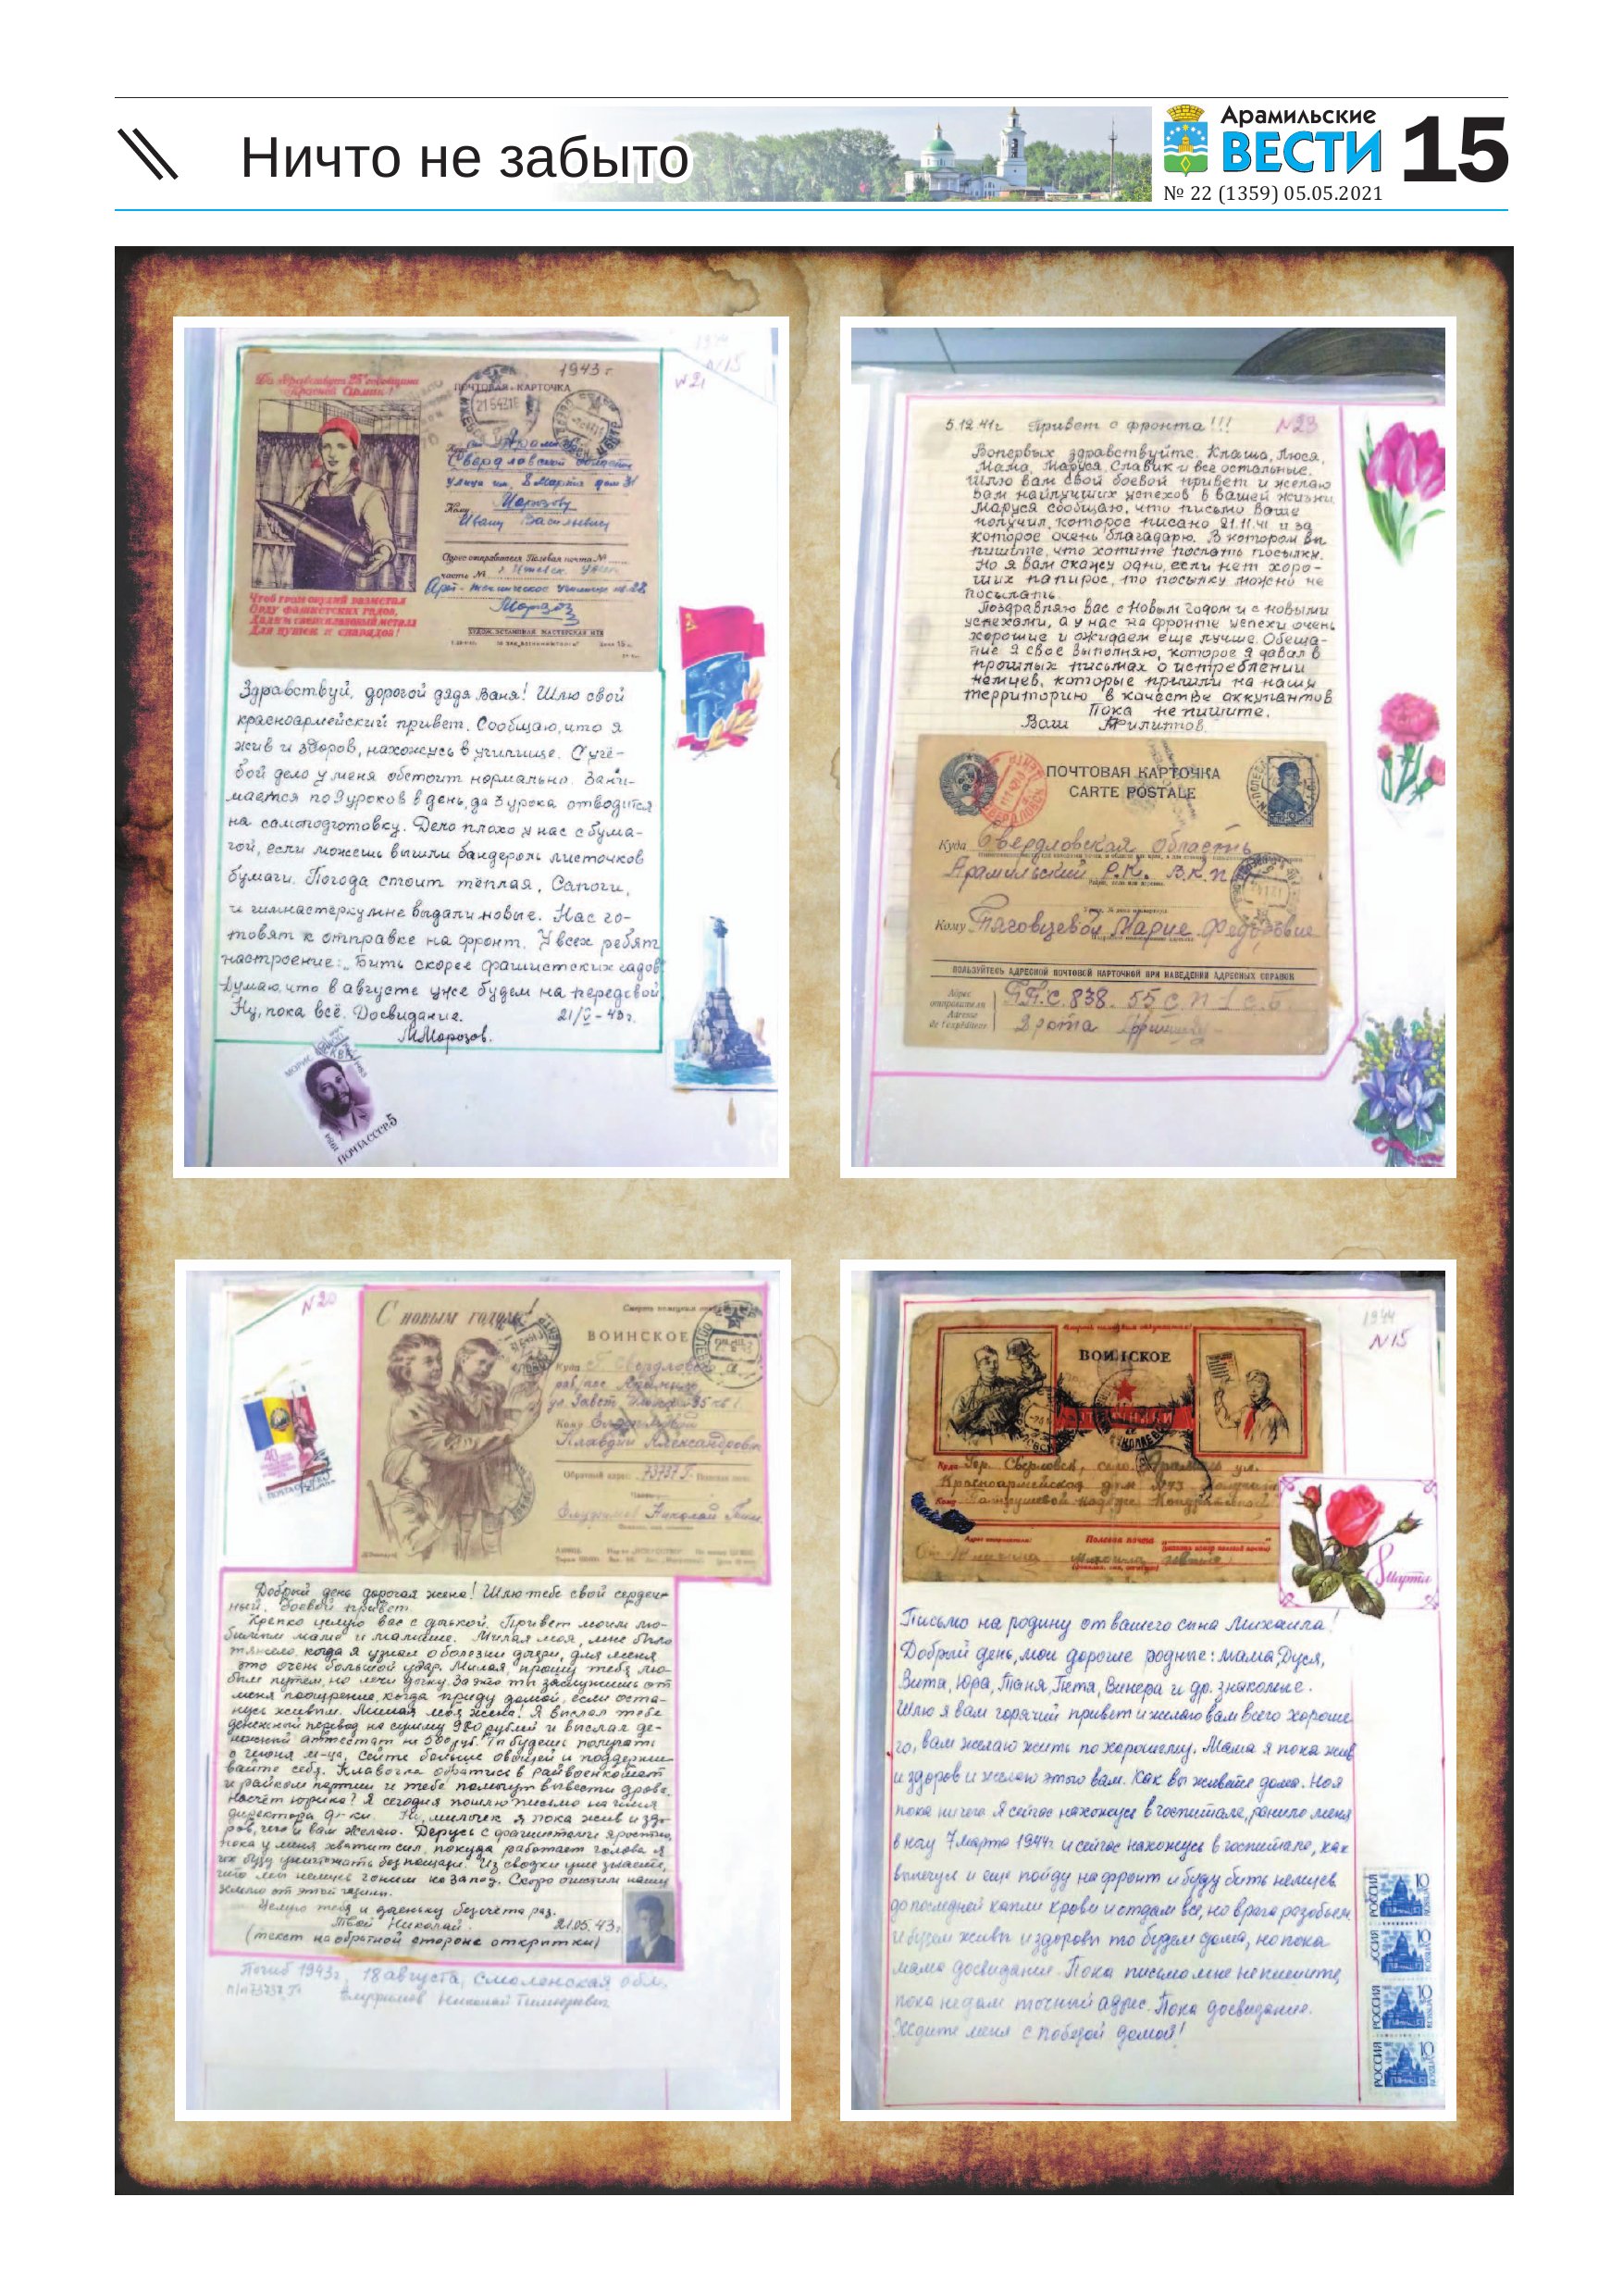 Ничто не забыто
Арамильские
ВЕСТИ
15
№ 22 (1359) 05.05.2021
1943 г
N15
N21
Красной Армии!
ПОЧТОВАЯ КАРТОЧКА
Свердловской области
улица им. 8 Марта дом 31
Кому Морозову
Ивану Васильевичу
Адрес отправителя Полевая почта №
часть №
Морозов
Чтоб гром орудий разметал
Орду фашистских гадов,
Дадим сверхплановый металл
Для пушек и снарядов!
Здравствуй, дорогой дядя Ваня! Шлю свой
красноармейский привет. Сообщаю, что я
жив и здоров, нахожусь в училище. С учё-
бой дело у меня обстоит нормально. Зани-
маемся по 9 уроков в день, да 3 урока отводится
на самоподготовку. Дело плохо у нас с бума-
гой, если можешь вышли бандероль листочков
бумаги. Погода стоит тёплая, Сапоги,
и гимнастёрку мне выдали новые. Нас го-
товят к отправке на фронт. У всех ребят
настроение: „Бить скорее фашистских гадов"
Думаю, что в августе уже будем на передовой
Ну, пока всё. Досвидание. 21/V - 43г.
М.Морозов.
ПОЧТА СССР 5
5.12.41г Привет с фронта!!! N23
Вопервых здравствуйте. Клаша, Люся,
Мама, Маруся, Славик и все остальные.
Шлю вам свой боевой привет и желаю
вам наилучших успехов в вашей жизни
Маруся сообщаю, что письмо Ваше
получил, которое писано 21.11.41 и за
которое очень благодарю. В котором вы
пишите, что хотите послать посылку.
Но я вам скажу одно, если нет хоро-
ших папирос, то посылку можно не
посылать.
Поздравляю Вас с Новым годом и с новыми
успехами, а у нас на фронте успехи очень
хорошие и ожидаем еще лучше. Обеща-
ние я свое выполняю, которое я давал в
прошлых письмах о истреблении
немцев, которые пришли на нашу
территорию в качестве оккупантов
Пока не пишите.
Ваш Филиппов.
ПОЧТОВАЯ КАРТОЧКА
CARTE POSTALE
Куда Свердловская область
Арамильский Р.К. В.К.П
Кому Таговцевой Марие Федоровне
ПОЛЬЗУЙТЕСЬ АДРЕСНОЙ ПОЧТОВОЙ КАРТОЧКОЙ ПРИ НАВЕДЕНИИ АДРЕСНЫХ СПРАВОК
Адрес
отправителя
Adresse
de l'expéditeur
П.П.С. 838. 55 с.п 1 с.б
2 рота
N20
С новым годом!
ВОИНСКОЕ
Куда г. Свердловск
Кому
Клавдии Александровне
Обратный адрес: 73737 Г
Николай
Добрый день дорогая жена! Шлю тебе свой сердеч-
ный, боевой привет.
Крепко целую вас с дочкой. Привет моим лю-
бимым маме и мамаше. Милая моя, мне было
тяжело, когда я узнал о болезни дочери, для меня
это очень большой удар. Милая, прошу тебя лю-
бым путём, но лечи дочку. За это ты заслужишь от
меня поощрение, когда приду домой, если оста-
нусь живым. Милая моя жена! Я выслал тебе
денежный перевод на сумму 980 рублей и выслал де-
нежный аттестат на 500 руб. Ты будешь получать
с июня м-ца. Сейте больше овощей и поддержи-
вайте себя. Клавочка обратись в райвоенкомат
и райком партии и тебе помогут вывести дрова.
Насчёт Юрика? Я сегодня пошлю письмо на имя
директора ф-ки. Ну, милочек я пока жив и здо-
ров, чего и вам желаю. Дерусь с фашистами яростно,
пока у меня хватит сил, покуда работает голова я
их буду уничтожать без пощады. Из сводки уже знаете,
что мы немцев гоним на запад. Скоро очистим нашу
землю от этой
Целую тебя и доченьку без счёта раз.
Твой Николай. 21.05.43г
(текст на обратной стороне открытки)
Погиб 1943г, 18 августа, Смоленская обл.
Николай
1944
N15
ВОИНСКОЕ
Гор. Свердловск, село Арамиль ул.
Красноармейская дом N43
Полевая почта
8 Марта
Письмо на родину от вашего сына Михаила!
Добрый день, мои дорогие родные: мама, Дуся,
Витя, Юра, Таня, Петя, Винера и др. знакомые.
Шлю я вам горячий привет и желаю вам всего хороше
го, вам желаю жить по хорошему. Мама я пока жив
и здоров и желаю этого вам. Как вы живете дома. Но я
пока ничего. Я сейчас нахожусь в госпитале, ранило меня
в ногу 7 марта 1944г и сейчас нахожусь в госпитале, как
вылечусь и еще пойду на фронт и буду бить немцев
до последней капли крови и отдам все, но врага разобьем
и будем живы и здоровы то будем дома, но пока
мама досвидания. Пока письмо мне не пишите,
пока не дам точный адрес. Пока досвидание.
Ждите меня с победой домой!
РОССИЯ 10
РОССИЯ 10
РОССИЯ 10
РОССИЯ 10